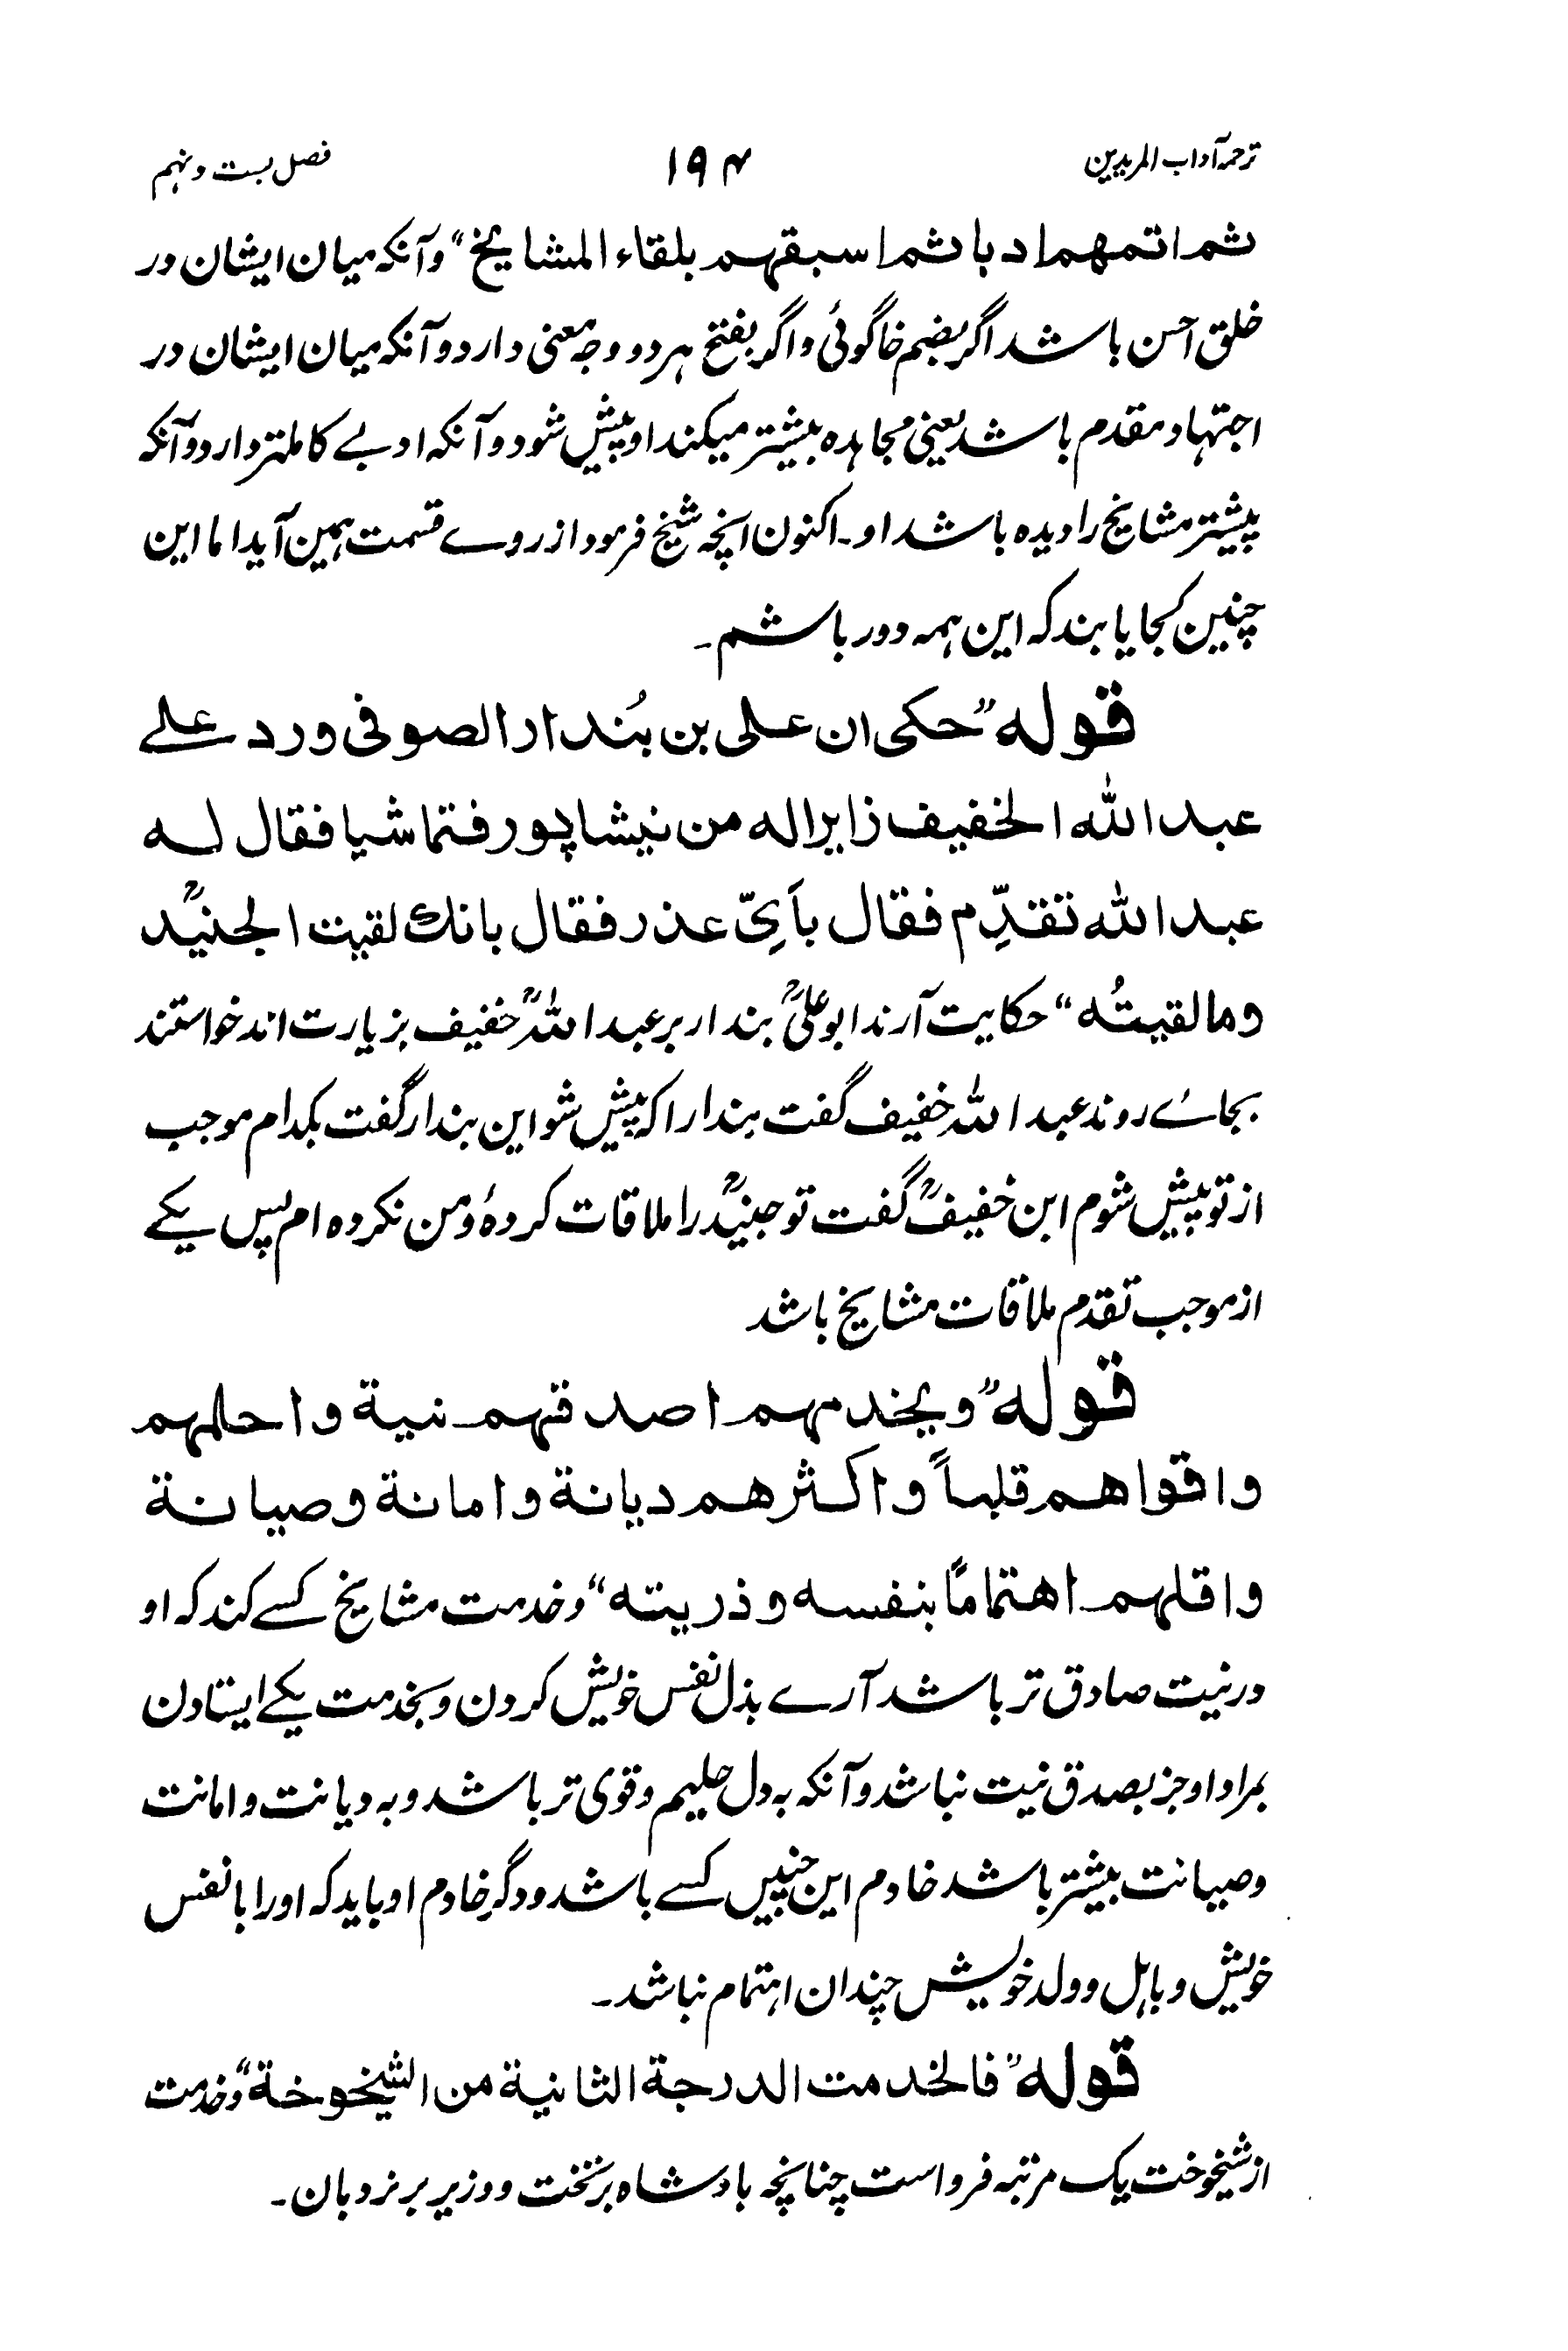 ترجمہ آداب المریدین ۱۹۴ فصل بست و نہم
ثم اتمهم ادبا ثم اسبقهم بلقاء المشايخ“ و آنکہ میان ایشان در
خلق احسن باشد اگر بضم خا گوئی و اگر بفتح ہر دو وجہ معنی دارد و آنکہ میان ایشان در
اجتہاد مقدم باشد یعنی مجاہدہ بیشتر میکند او پیش شود و آنکہ ادبے کاملتر دارد و آنکہ
پیشتر مشایخ را دیدہ باشد او۔ اکنون انچہ شیخ فرمود از روے قسمت ہمین آید اما این
چنین کجا یابند کہ این ہمہ دور باشم۔
قوله ”حكى ان على بن بُندار الصوفى ورد علے
عبد الله الخفيف زايرا له من نيشاپور فتماشيا فقال له
عبد الله تقدِّم فقال بأىِّ عذر فقال بانك لقيت الجنيدؒ
وما لقيتُه“ حکایت آرند ابو علیؒ بندار بر عبد اللہؒ خفیف بزیارت اند خواستند
بجائے روند عبد اللہ خفیف گفت بندار را کہ پیش شو این بندار گفت بکدام موجب
از تو پیش شوم ابن خفیفؒ گفت تو جنیدؒ را ملاقات کردۂ و من نکردہ ام پس یکے
از موجب تقدم ملاقات مشایخ باشد
قوله ”ويخدمهم اصدقهم نية واحلمهم
واقواهم قلباً واكثرهم ديانة وامانة وصيانة
واقلهم اهتماماً بنفسه وذريته“ و خدمت مشایخ کسے کند کہ او
در نیت صادق تر باشد آرے بذل نفس خویش کردن و بخدمت یکے ایستادن
بمراد او جز بصدق نیت نباشد و آنکہ بہ دل حلیم و قوی تر باشد و بہ دیانت و امانت
و صیانت بیشتر باشد خادم این چنیں کسے باشد و دگر خادم او باید کہ او را با نفس
خویش و باہل و ولد خویش چندان اہتمام نباشد۔
قوله ”فالخدمت الدرجة الثانية من الشيخوخة“ و خدمت
از شیخوخت یک مرتبہ فرو است چنانچہ بادشاہ بر تخت و وزیر بر نردبان۔